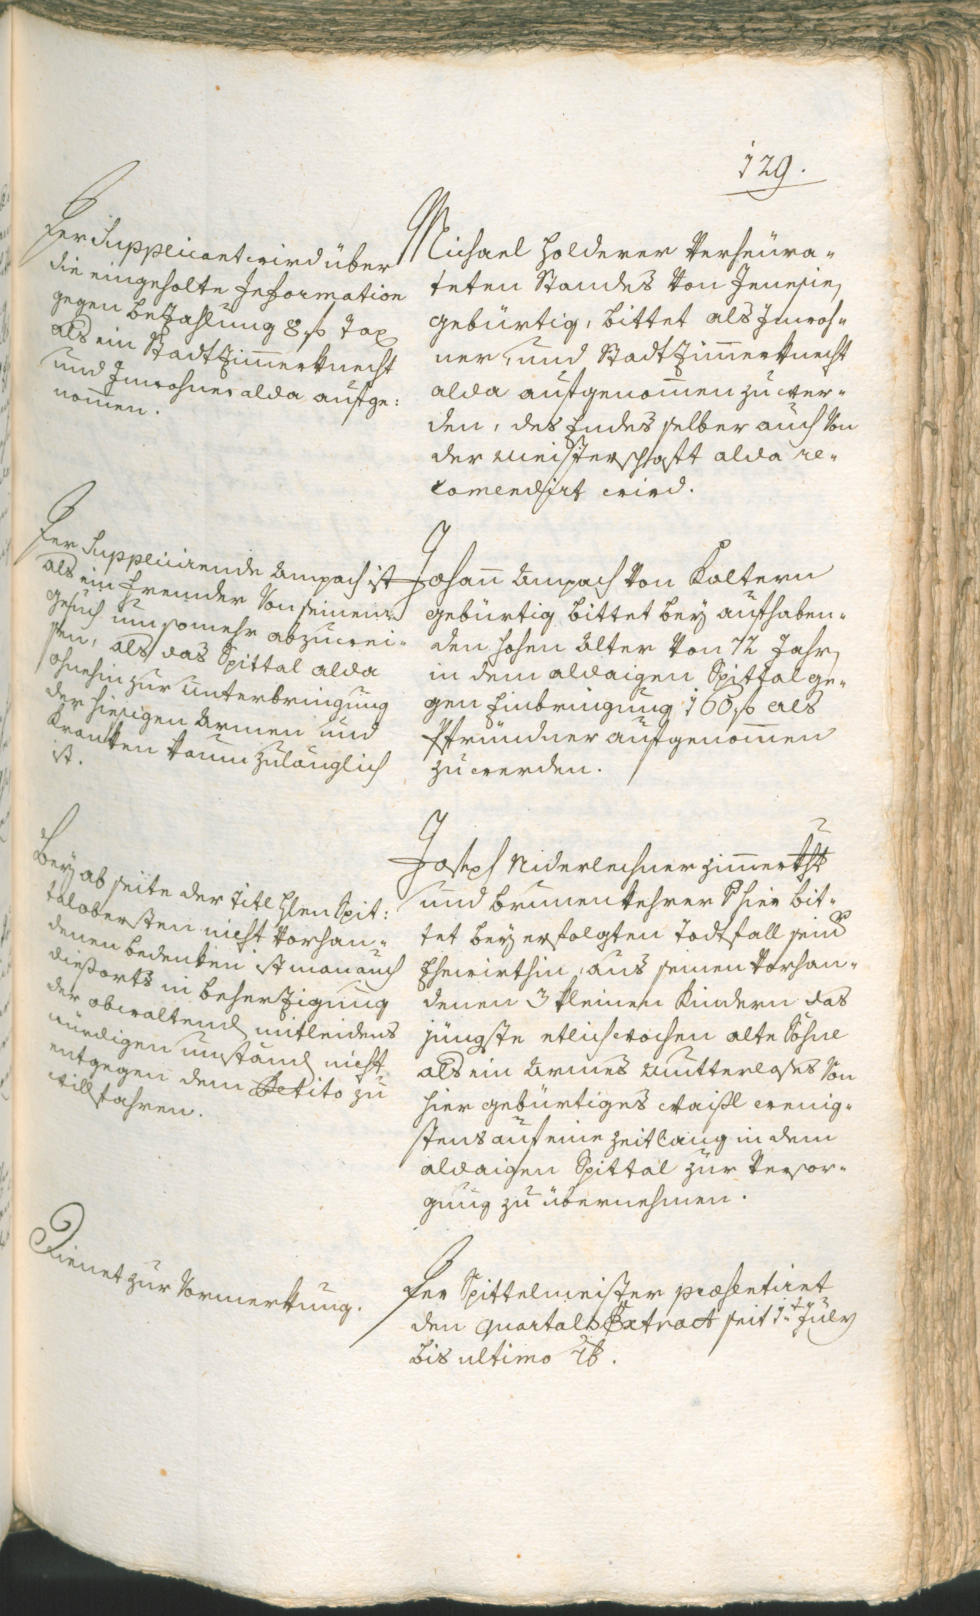 129.
Der Supplicant wird über
die eingeholte Information
gegen Bezahlung 8 f Tax
als ein Stadtzimerknecht
und Inwohner alda aufge:
nomen.
Michael Holderer verheüra-
teten Standes von Jenesien
gebürtig, bittet als Inwoh-
ner und Stadtzimerknecht
alda aufgenomen zu wer-
den, des Endes selber auch von
der Meisterschaft alda re-
comendirt wird.
Der Supplicirende Ampach ist
als ein Fremder von seinem
Gesuch um so mehr abzuwei-
sen, als das Spittal alda
ohnehin zur Unterbringung
der hiesigen Armen und
Kranken kaum zulänglich
ist.
Johann Ampach von Kaltern
gebürtig bittet bey aufhaben-
den hohen Alter von 72 Jahr
in dem aldaigen Spittal ge-
gen Einbringung 100 f als
Pfründner aufgenomen
zu werden.
Bey ab seite der Titl H: Spit:
talobersten nicht vorhan-
denen Bedenken ist man auch
diesorts in Beherzigung
der obwaltend mitleidens
würdigen Umständ nicht
entgegen dem Petito zu
willfahren.
Joseph Niderlechner Zimer
und Brunenkehrer hier bit-
tet bey erfolgten Todtfall sein
Ehewirthin, aus seinen vorhan-
denen 3 kleinen Kindern das
jüngste etlich wochen alte Söhnl
als ein Armes Mutterloses von
hier gebürtiges Waisl wenig-
stens auf eine Zeitlang in dem
aldaigen Spittal zur Versor-
gung zu übernehmen.
Dienet zur Vormerkung.
Der Spittelmeister præsentiret
den Quartals Extract seit 1t July
bis ultimo 7b.